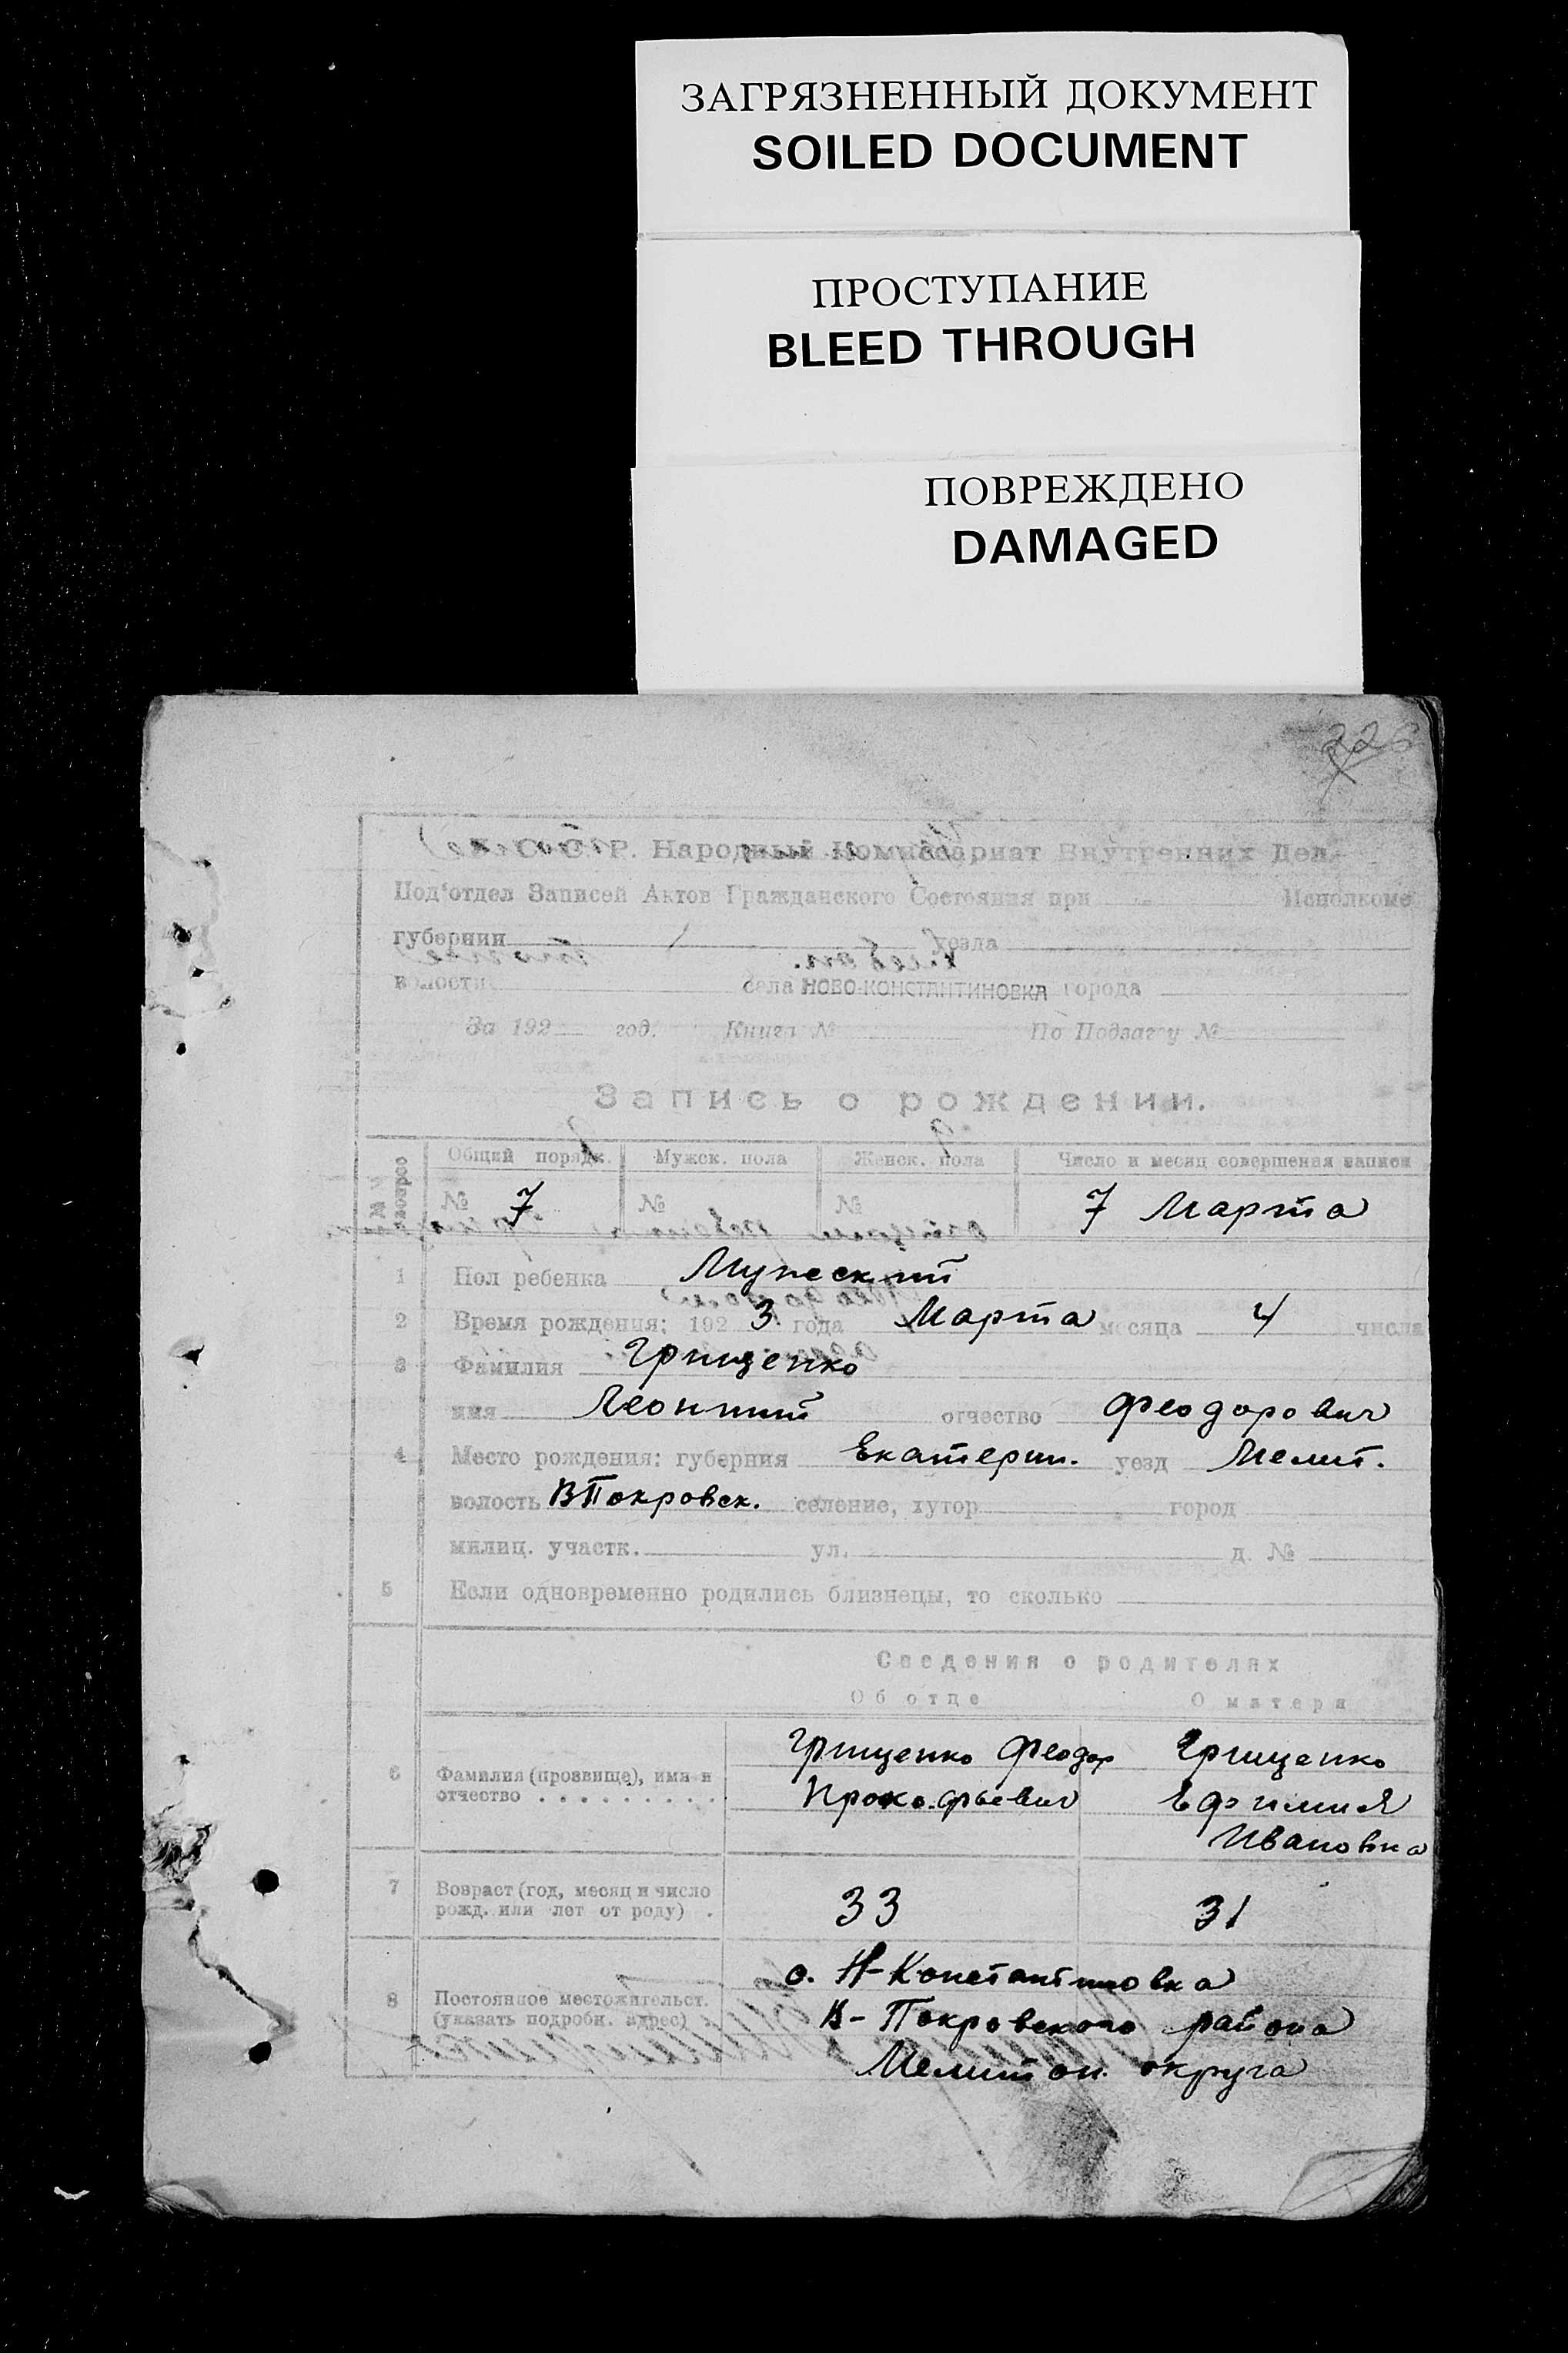 ЗАГРЯЗНЕННЫЙ ДОКУМЕНТ
SOILED DOCUMENT
ПРОСТУПАНИЕ
BLEED THROUGH
ПОВРЕЖДЕНО
DAMAGED
226
С. С. Р. Народный Комиссариат Внутренних Дел.
Под'отдел Записей Актов Гражданского Состояния при Исполкоме
губернии уезда
волости села НОВО-КОНСТАНТИНОВКА города
За 192 год. Книга № По Подзагсу №
Запись о рождении.
Общий порядк. Мужск. пола Женск. пола Число и месяц совершения записи
№ 7 № № 7 Марта
1 Пол ребенка Мужеский
2 Время рождения: 192 3 года Марта месяца 4 числа
3 Фамилия Грищенко
имя Леонтий отчество Феодорович
4 Место рождения: губерния Екатерин. уезд Мелит.
волость ВПокровск. селение, хутор город
милиц. участк. ул. д. №
5 Если одновременно родились близнецы, то сколько
Сведения о родителях
Об отце О матери
6 Фамилия (прозвище), имя и отчество Грищенко Феодор Грищенко
Прокофьевич Ефимия
Ивановна
7 Возраст (год, месяц и число
рожд. или лет от роду) 33 31
с. Н-Константиновка
8 Постоянное местожительст.
(указать подробн. адрес) В-Покровского района
Мелитоп. округа